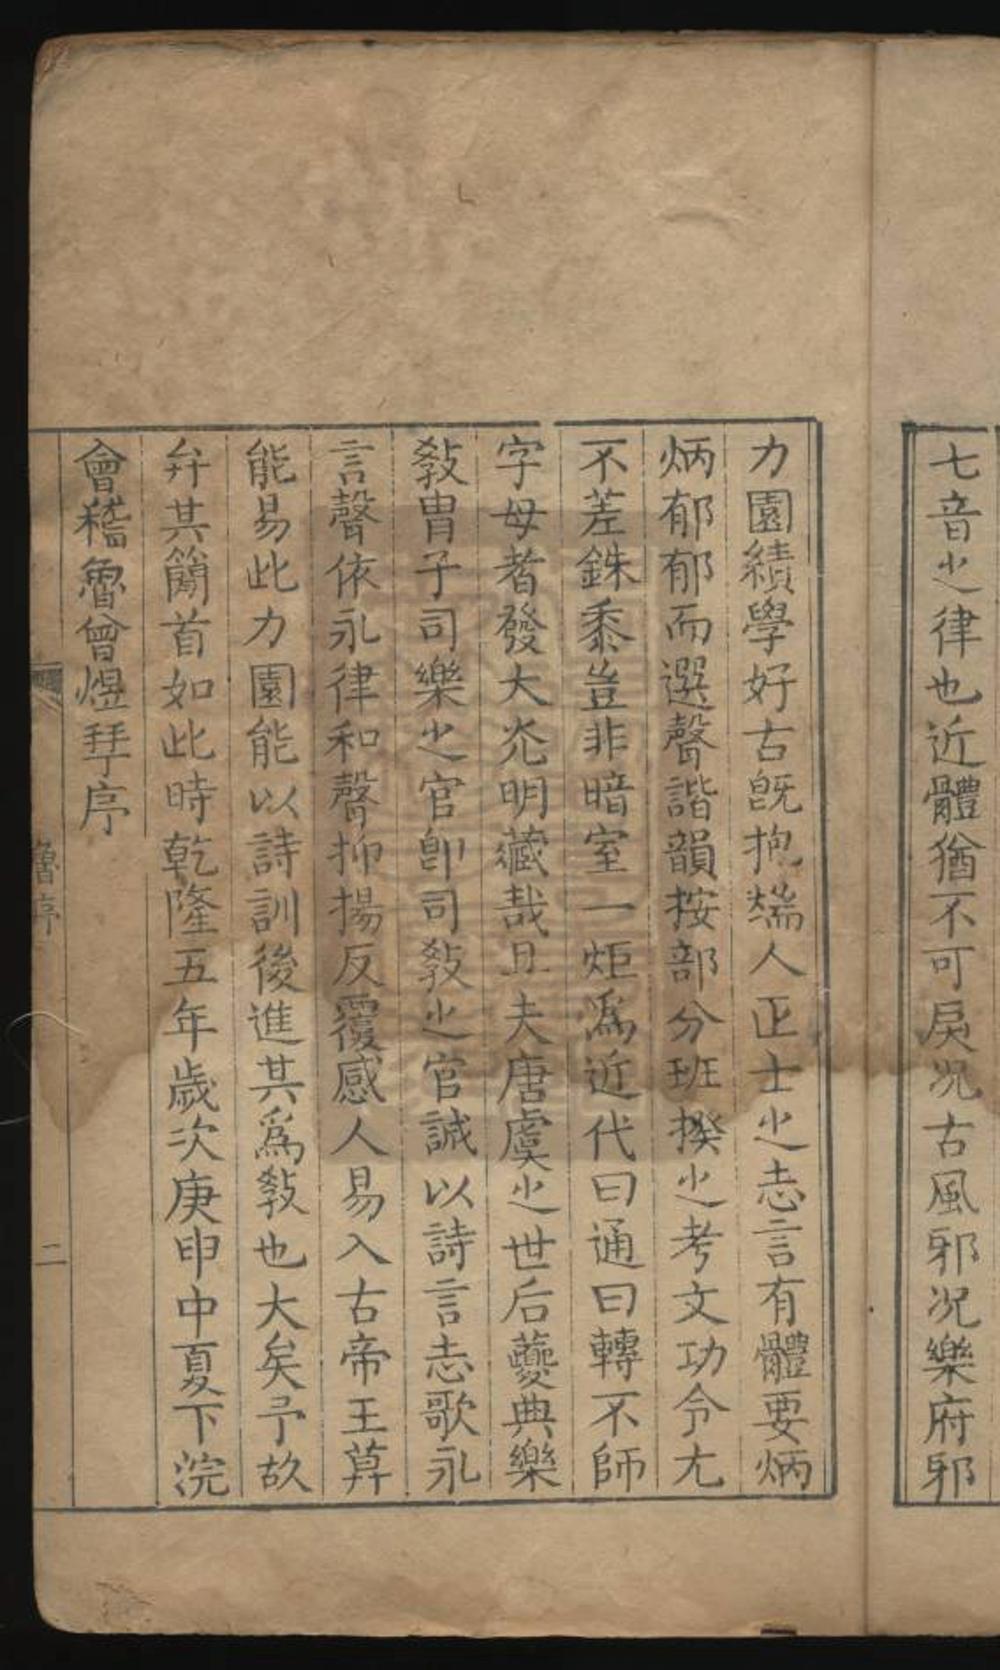 七音之律也近體猶不可戾况古風邪况樂府邪
力園績學好古旣抱端人正士之志言有體要炳
炳郁郁而選聲諧韻按部分班揆之考文功令尢
不差銖黍豈非暗室一炬爲近代曰通曰轉不師
字母者發大光明藏哉且夫唐虞之世后夔典樂
敎冑子司樂之官卽司敎之官誠以詩言志歌永
言聲依永律和聲抑揚反覆感人易入古帝王莫
能易此力園能以詩訓後進其爲敎也大矣予故
弁其簡首如此時乾隆五年歲次庚申中夏下浣
會稽魯曾煜拜序
魯序
二